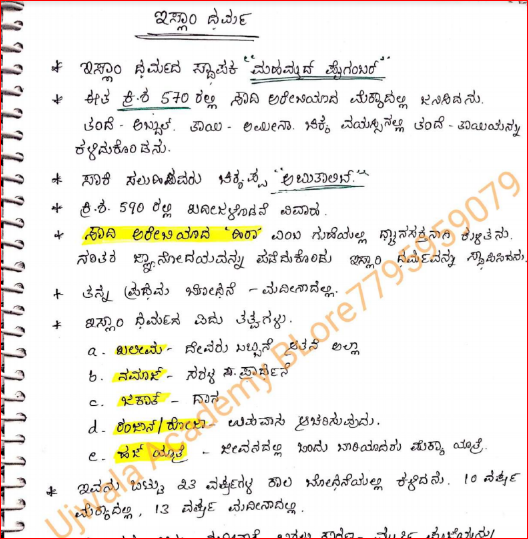 ಇಸ್ಲಾಂ ಧರ್ಮ
* ಇಸ್ಲಾಂ ಧರ್ಮದ ಸ್ಥಾಪಕ "ಮಹಮ್ಮದ್ ಪೈಗಂಬರ್"
* ಈತ ಕ್ರಿ.ಶ 570 ರಲ್ಲಿ ಸೌದಿ ಅರೇಬಿಯಾದ ಮೆಕ್ಕಾದಲ್ಲಿ ಜನಿಸಿದನು.
ತಂದೆ - ಅಬ್ದುಲ್. ತಾಯಿ - ಅಮೀನಾ. ಚಿಕ್ಕ ವಯಸ್ಸಿನಲ್ಲಿ ತಂದೆ-ತಾಯಿಯನ್ನು
ಕಳೆದುಕೊಂಡನು.
* ಸಾಕಿ ಸಲುಹಿದವರು ಚಿಕ್ಕಪ್ಪ "ಅಬುತಾಲಿಬ್".
* ಕ್ರಿ.ಶ. 590 ರಲ್ಲಿ ಖದೀಜಳೊಡನೆ ವಿವಾಹ.
* ಸೌದಿ ಅರೇಬಿಯಾದ 'ಹಿರಾ' ಎಂಬ ಗುಹೆಯಲ್ಲಿ ಧ್ಯಾನಸಕ್ತನಾಗಿ ಕುಳಿತನು.
ನಂತರ ಜ್ಞಾನೋದಯವನ್ನು ಪಡೆದುಕೊಂಡು ಇಸ್ಲಾಂ ಧರ್ಮವನ್ನು ಸ್ಥಾಪಿಸಿದನು.
* ತನ್ನ ಪ್ರಥಮ ಬೋಧನೆ - ಮದೀನಾದಲ್ಲಿ.
* ಇಸ್ಲಾಂ ಧರ್ಮದ ಐದು ತತ್ವಗಳು.
a. ಖಲೀಮ - ದೇವರು ಒಬ್ಬನೆ ಆತನೆ ಅಲ್ಲಾ
b. ನಮಾಜ್ - ಸರಳ ಪ್ರಾರ್ಥನೆ
c. ಜಕಾತ್ - ದಾನ
d. ರಂಜಾನ್/ರೋಜಾ - ಉಪವಾಸ ಆಚರಿಸುವುದು.
e. ಹಜ್ ಯಾತ್ರೆ - ಜೀವನದಲ್ಲಿ ಒಂದು ಬಾರಿಯಾದರು ಮೆಕ್ಕಾ ಯಾತ್ರೆ.
* ಇವನು ಒಟ್ಟು 23 ವರ್ಷಗಳ ಕಾಲ ಬೋಧನೆಯಲ್ಲಿ ಕಳೆದನು. 10 ವರ್ಷ
ಮೆಕ್ಕಾದಲ್ಲಿ, 13 ವರ್ಷ ಮದೀನಾದಲ್ಲಿ.
Ujwala Academy BLore7795959079